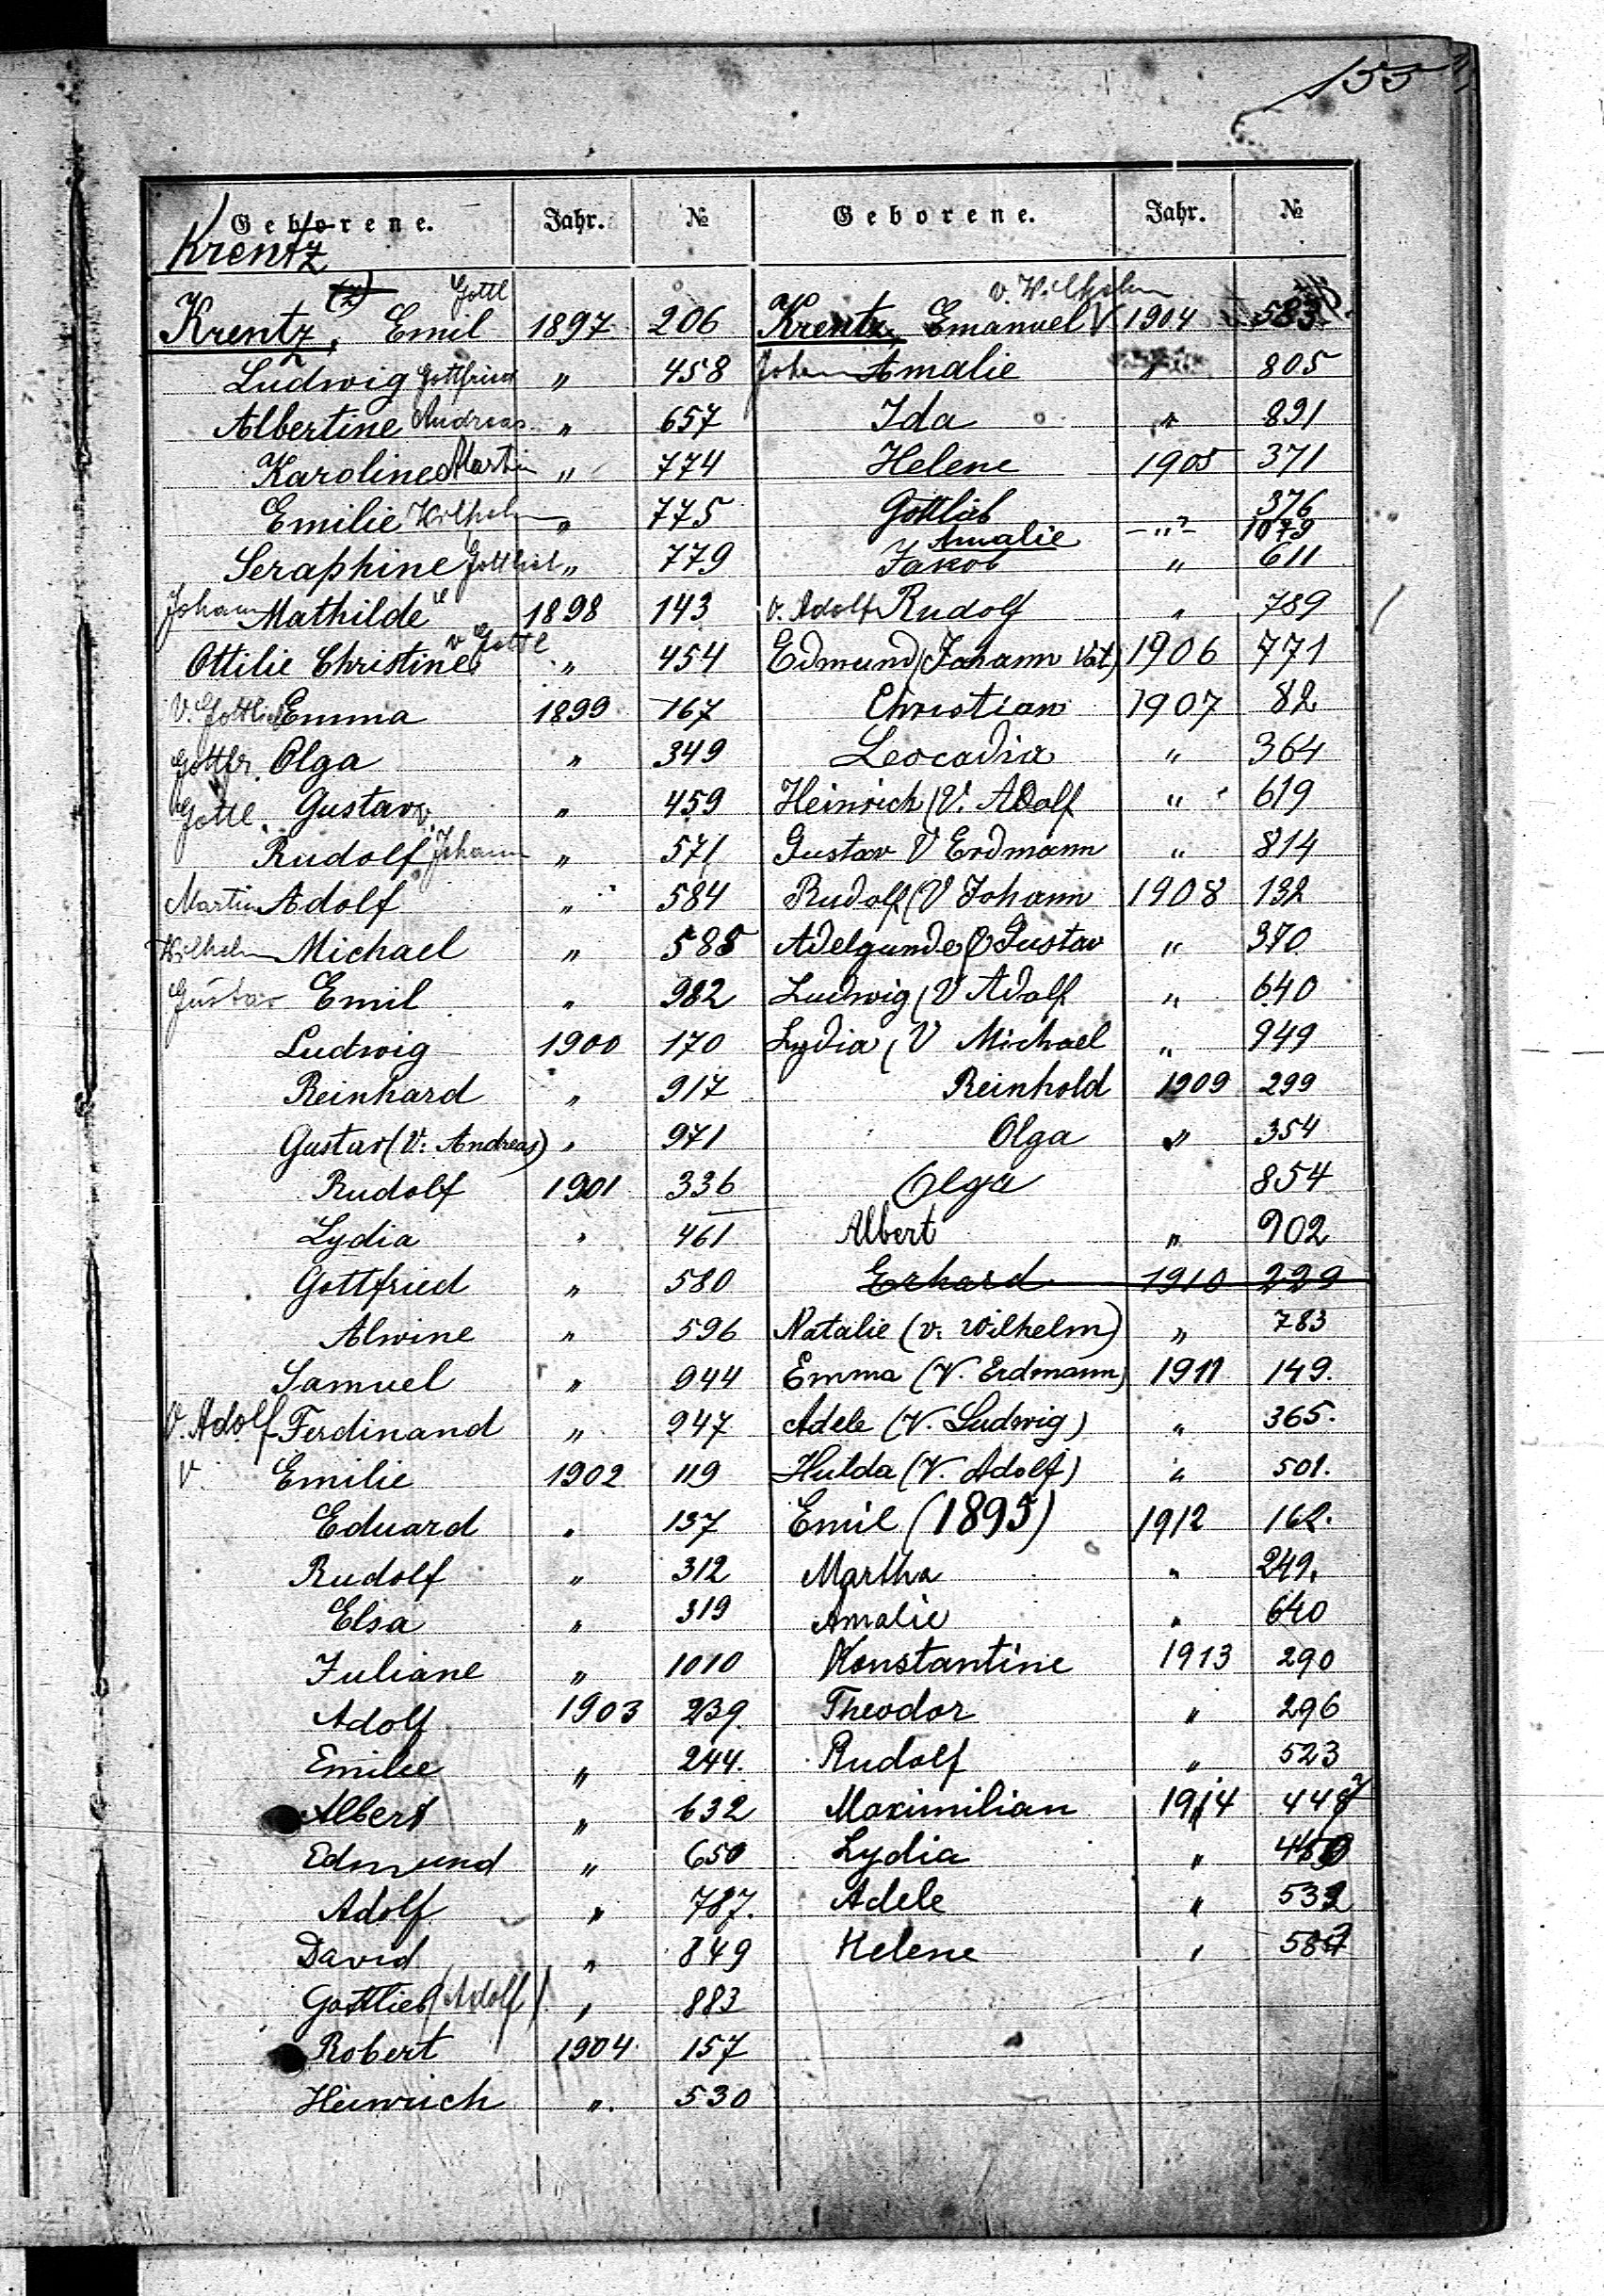 155
Geborene. Jahr. № Geborene. Jahr. №
Krentz
Krentz, (z) Emil Gottl 1897 206
Ludwig Gottfried " 458
Albertine Andreas " 657
Karoline Martin " 774
Emilie Wilhelm " 775
Seraphine Gottlieb " 779
Johann Mathilde 1898 143
Ottilie Christine v Gottl " 454
V. Gottlieb Emma 1899 167
Gottfr. Olga " 349
Gottl. Gustav " 459
Rudolf v. Johann " 571
Martin Adolf " 584
Wilhelm Michael " 585
Gustav Emil " 982
Ludwig 1900 170
Reinhard " 917
Gustav (V: Andreas) " 971
Rudolf 1901 336
Lydia " 461
Gottfried " 580
Alwine " 596
Samuel " 944
V. Adolf Ferdinand " 947
V. Emilie 1902 119
Eduard " 137
Rudolf " 312
Elsa " 319
Juliane " 1010
Adolf 1903 239.
Emilie " 244.
Albert " 632
Edmund " 650
Adolf " 787.
David " 849
Gottlieb (Adolf) " 883
Robert 1904 157
Heinrich " 530
Krentz, Emanuel V v. Wilhelm 1904 583
Johann Amalie " 805
Ida " 821
Helene 1905 371
Gottlieb 376
Amalie -"- 1079
Jakob " 611
v. Adolf Rudolf " 789
Edmund (Johann Vat) 1906 771
Christian 1907 82
Leocadia " 364
Heinrich (V. Adolf " 619
Gustav V Erdmann " 814
Rudolf (V Johann 1908 132
Adelgunde (V Gustav " 370
Ludwig (V Adolf " 640
Lydia (V Michael " 949
Reinhold 1909 299
Olga " 354
Olga 854
Albert " 902
Erhard 1910 229
Natalie (v. Wilhelm) " 783
Emma (V. Erdmann) 1911 149.
Adele (V. Ludwig) " 365.
Hulda (V. Adolf) " 501.
Emil (1895) 1912 162.
Martha " 249.
Amalie " 640
Konstantine 1913 290
Theodor " 296
Rudolf " 523
Maximilian 1914
Lydia "
Adele " 532
Helene "